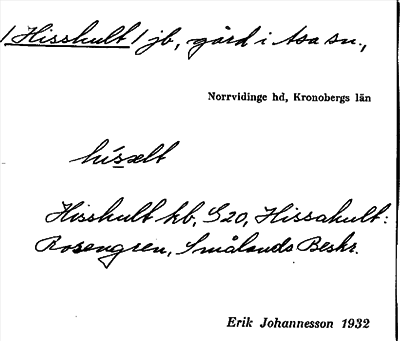 /Hisshult/ jb, gård i Asa sn.,
Norrvidinge hd, Kronobergs län
hisælt
Hisshult hb, S20, Hissahult:
Rosengren, Smålands Beskr.
Erik Johannesson 1932